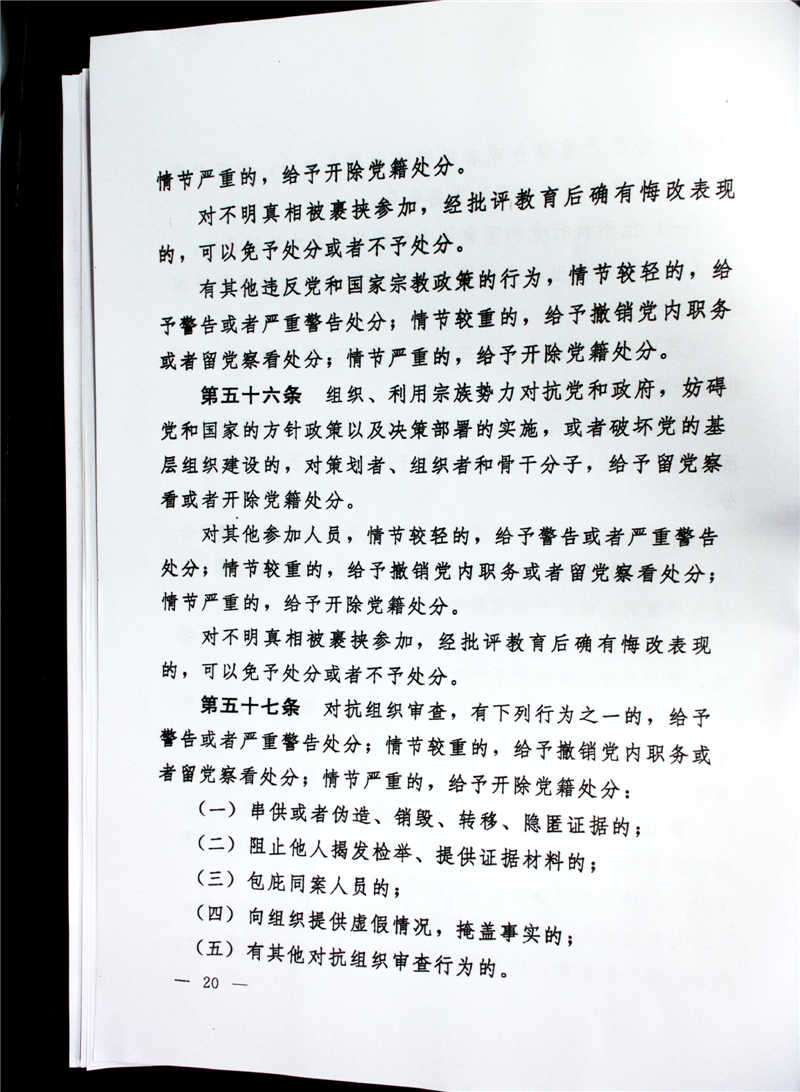 情节严重的，给予开除党籍处分。
对不明真相被裹挟参加，经批评教育后确有悔改表现
的，可以免予处分或者不予处分。
有其他违反党和国家宗教政策的行为，情节较轻的，给
予警告或者严重警告处分；情节较重的，给予撤销党内职务
或者留党察看处分；情节严重的，给予开除党籍处分。
第五十六条　组织、利用宗族势力对抗党和政府，妨碍
党和国家的方针政策以及决策部署的实施，或者破坏党的基
层组织建设的，对策划者、组织者和骨干分子，给予留党察
看或者开除党籍处分。
对其他参加人员，情节较轻的，给予警告或者严重警告
处分；情节较重的，给予撤销党内职务或者留党察看处分；
情节严重的，给予开除党籍处分。
对不明真相被裹挟参加，经批评教育后确有悔改表现
的，可以免予处分或者不予处分。
第五十七条　对抗组织审查，有下列行为之一的，给予
警告或者严重警告处分；情节较重的，给予撤销党内职务或
者留党察看处分；情节严重的，给予开除党籍处分：
（一）串供或者伪造、销毁、转移、隐匿证据的；
（二）阻止他人揭发检举、提供证据材料的；
（三）包庇同案人员的；
（四）向组织提供虚假情况，掩盖事实的；
（五）有其他对抗组织审查行为的。
— 20 —